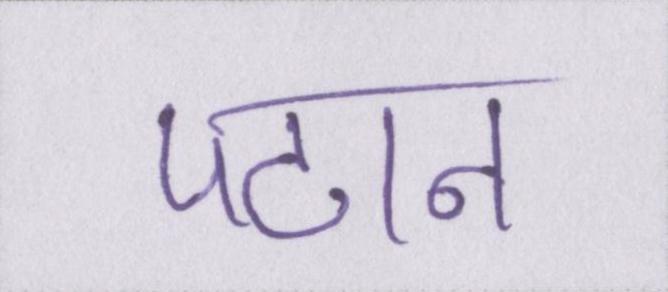 पठान